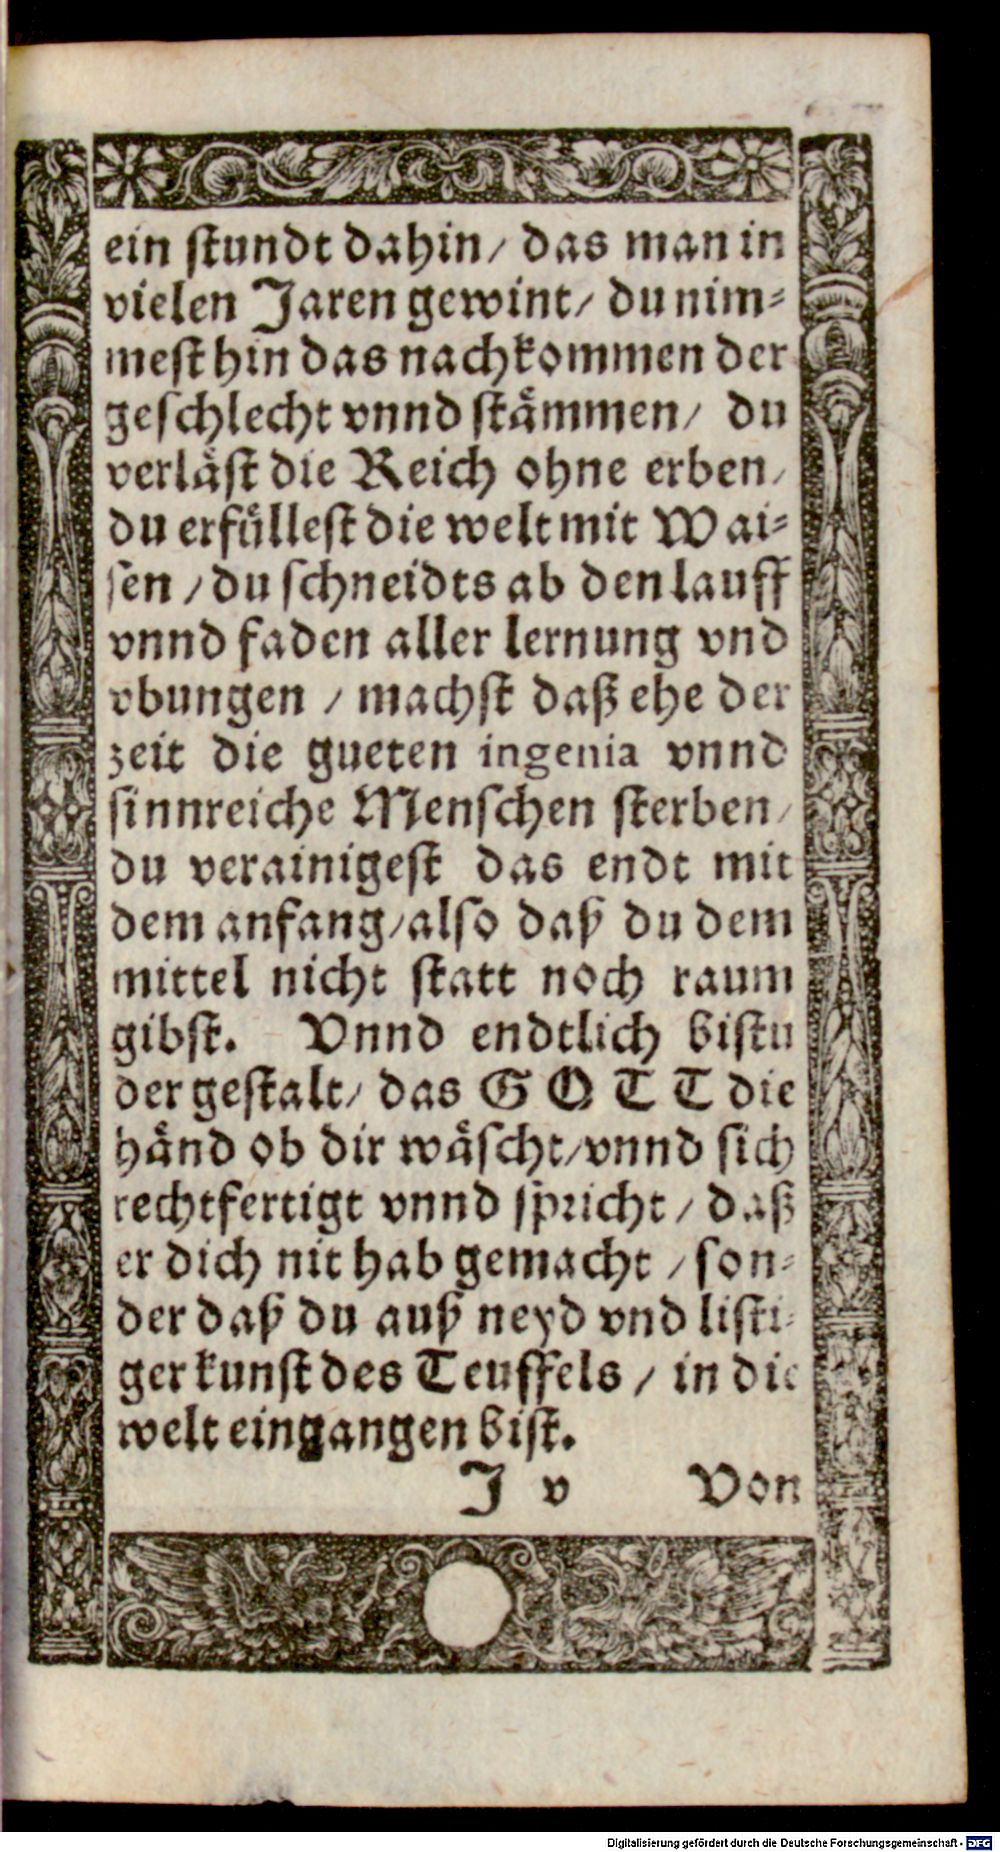 ein stundt dahin/ das man in
vielen Jaren gewint/ du nim⸗
mest hin das nachkommen der
geschlecht vnnd stämmen/ du
verläst die Reich ohne erben/
du erfüllest die welt mit Wai⸗
sen / du schneidts ab den lauff
vnnd faden aller lernung vnd
vbungen / machst daß ehe der
zeit die gueten ingenia vnnd
sinnreiche Menschen sterben/
du verainigest das endt mit
dem anfang/also daß du dem
mittel nicht statt noch raum
gibst. Vnnd endtlich bistu
der gestalt/ das GOTT die
händ ob dir wäscht/vnnd sich
rechtfertigt vnnd spricht / daß
er dich nit hab gemacht / son⸗
der daß du auß neyd vnd listi⸗
ger kunst des Teuffels / in die
welt eingangen bist.
J v Von
Digitalisierung gefördert durch die Deutsche Forschungsgemeinschaft - DFG